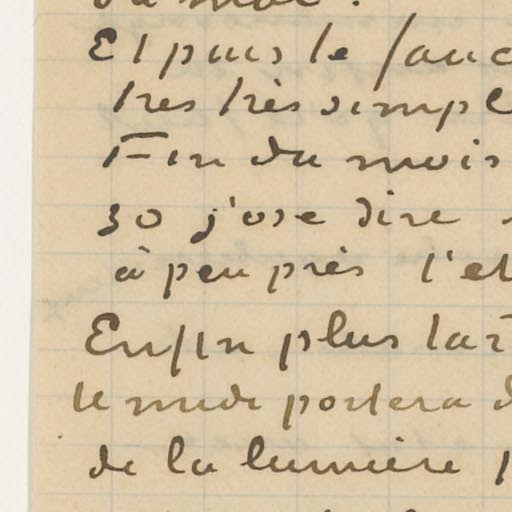 Et puis le
très très simple
Fin du mois
30 j'ose dire
à peu près l'et
Enfin plus tar
le midi portera d
de la lumière p